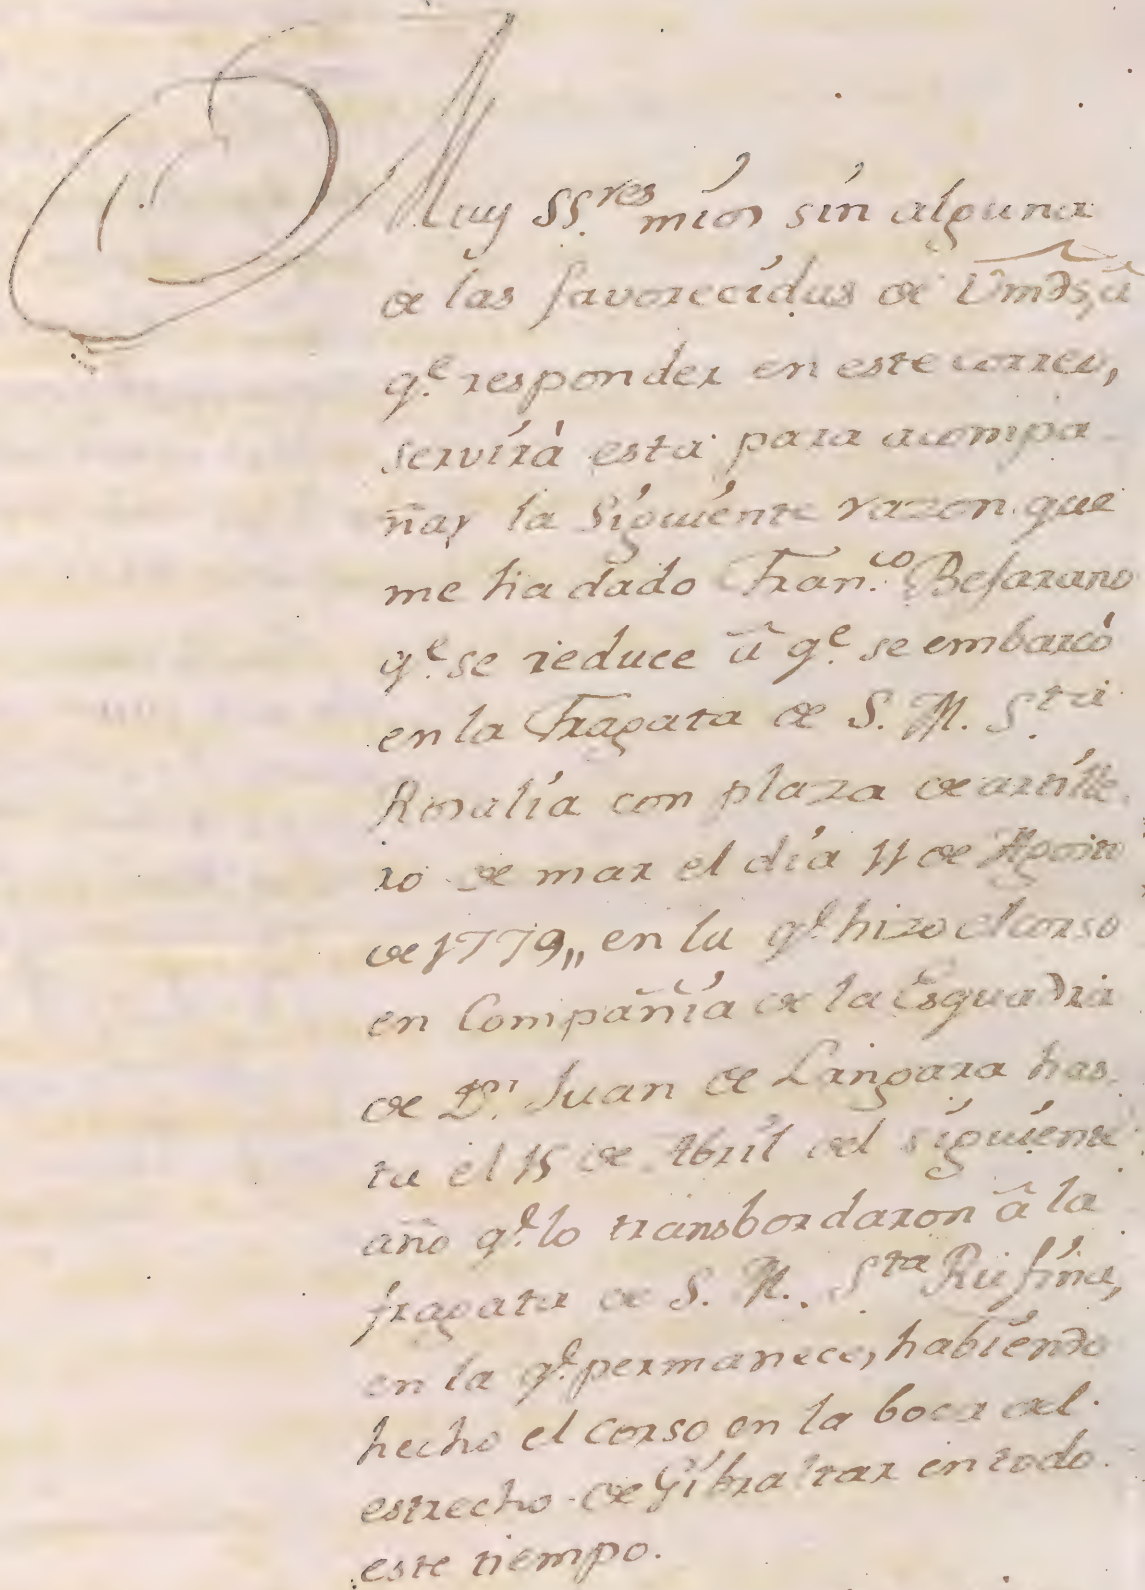 Muy SS.res míos sín alguna
de las favorecídas de Vmds, â
q.e responder en este correo,
servírà esta para acompa
ñar la Síguíente razon que
me ha dado Fran.co Besarano
q.e se reduce â q.e se embarcò
en la Fragata de S. M. S.ta
Rosalía con plaza de artílle
ro de mar el día 11 de Agosto
de 1779,, en la q.l hizo el corso
en Compañía de la Esquadra
de D.n Juan de Langara has
ta el 15 de Abríl del síguíente
año q.e lo transbordaron â la
fragata de S. M. Sta Rufína,
en la q.l permanece, habíendo
hecho el corso en la boca del
estrecho de Gíbraltar en todo
este tiempo.